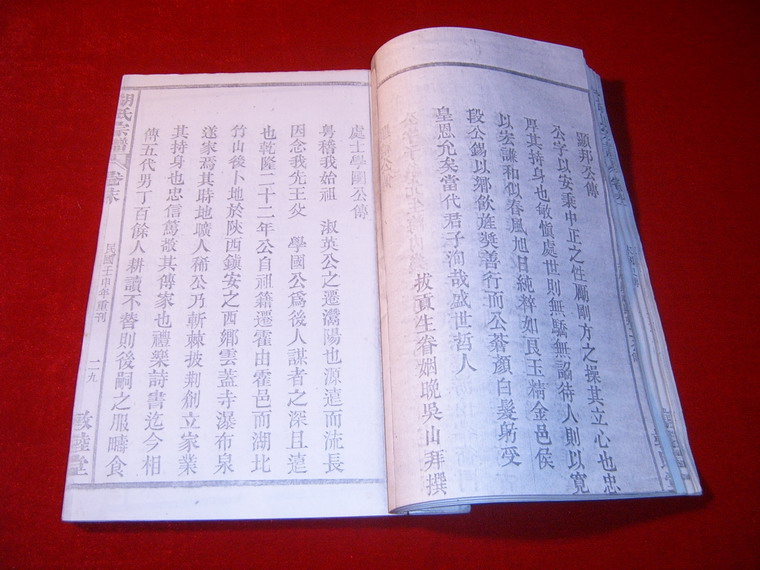 顯邦公傳
公字以安秉中正之性勵剛方之操其立心也忠
厚其持身也敏愼處世則無驕無諂待人則以寬
以宏謙和似春風旭日純粹如良玉精金邑侯
段公錫以鄉飲旌奬善行而公蒼顏白髮躬受
皇恩允矣當代君子洵哉盛世哲人
拔貢生眷姻晚吳山拜撰
處士學國公傳
粤稽我始祖 淑英公之遷灊陽也源遠而流長
因念我先王父 學國公爲後人謀者之深且遠
也乾隆二十二年公自祖籍遷霍由霍邑而湖北
竹山後卜地於陝西鎭安之西鄉雲蓋寺瀑布泉
遂家焉其時地曠人稀公乃斬棘披荆創立家業
其持身也忠信篤敬其傳家也禮樂詩書迄今相
傳五代男丁百餘人耕讀不替則後嗣之服疇食
胡氏宗譜 卷末
民國壬申年重刊
二九
敦睦堂